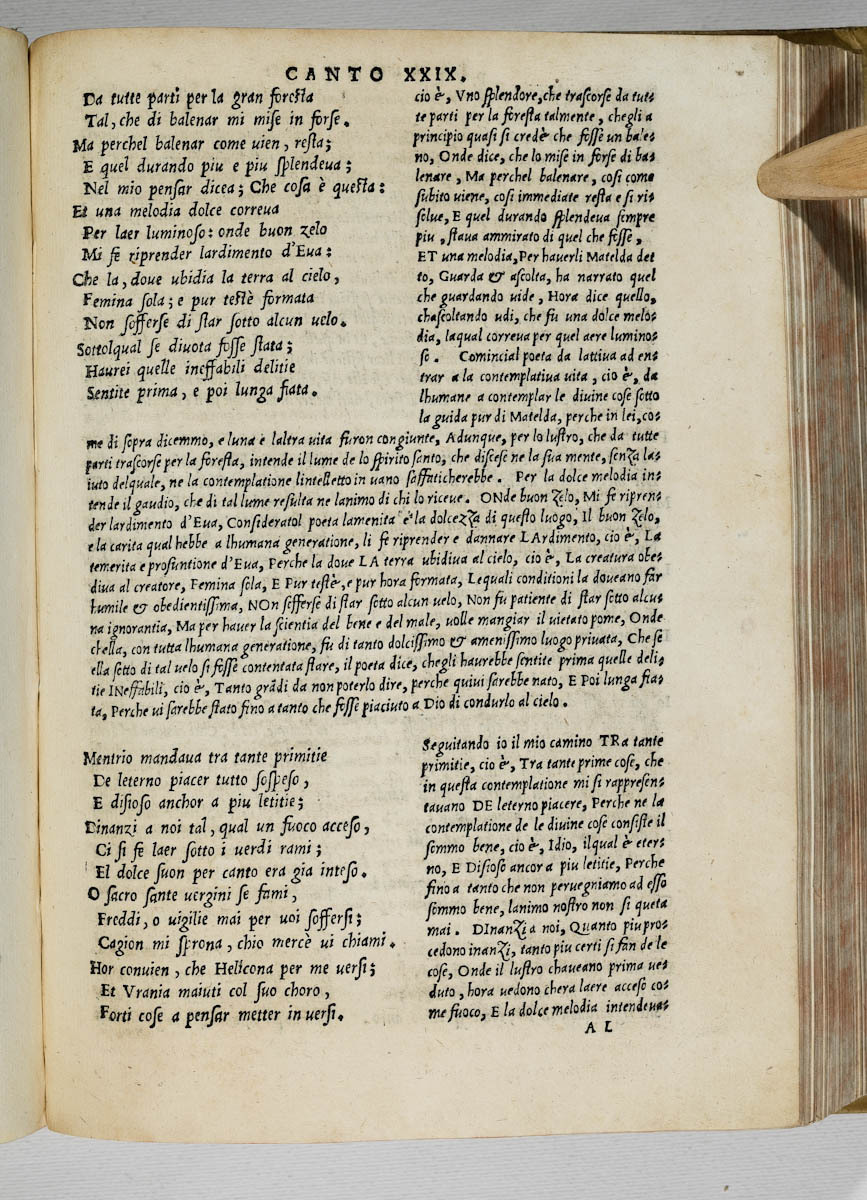 CANTO XXIX.
Da tutte parti per la gran foresta
Tal, che di balenar mi mise in forse.
Ma perchel balenar come uien, resta;
E quel durando piu e piu splendeua;
Nel mio pensar dicea; Che cosa è questa:
Et una melodia dolce correua
Per laer luminoso: onde buon zelo
Mi fe riprender lardimento d'Eua:
Che la, doue ubidia la terra al cielo,
Femina sola; e pur testè formata
Non sofferse di star sotto alcun uelo.
Sottolqual se diuota fosse stata;
Haurei quelle ineffabili delitie
Sentite prima, e poi lunga fiata.
cio è, Vno splendore, che trascorse da tut-
te parti per la foresta talmente, chegli a
principio quasi si credè che fosse un bale-
no, Onde dice, che lo mise in forse di ba-
lenare, Ma perchel balenare, cosi come
subito uiene, cosi immediate resta e si ri-
solue, E quel durando splendeua sempre
piu, staua ammirato di quel che fosse,
ET una melodia, Per hauerli Matelda det
to, Guarda & ascolta, ha narrato quel
che guardando uide, Hora dice quello,
chascoltando udi, che fù una dolce melo-
dia, laqual correua per quel aere lumino-
so. Comincial poeta da lattiua ad en-
trar a la contemplatiua uita, cio è, da
lhumane a contemplar le diuine cose sotto
la guida pur di Matelda, perche in lei, co-
me di sopra dicemmo, e luna e laltra uita furon congiunte, Adunque, per lo lustro, che da tutte
parti trascorse per la foresta, intende il lume de lo spirito santo, che discese ne la sua mente, senza la-
iuto delquale, ne la contemplatione lintelletto in uano saffaticherebbe. Per la dolce melodia in-
tende il gaudio, che di tal lume resulta ne lanimo di chi lo riceue. ONde buon zelo, Mi fe ripren-
der lardimento d'Eua, Consideratol poeta lamenita e la dolcezza di questo luogo, Il buon zelo,
e la carita qual hebbe a lhumana generatione, li fe riprender e dannare LArdimento, cio è, La
temerita e prosuntione d'Eua, Perche la doue LA terra ubidiua al cielo, cio è, La creatura obe-
diua al creatore, Femina sola, E Pur testè, e pur hora formata, Lequali conditioni la doueano far
humile & obedientissima, NOn sofferse di star sotto alcun uelo, Non fu patiente di star sotto alcu-
na ignorantia, Ma per hauer la scientia del bene e del male, uolle mangiar il uietato pome, Onde
chella, con tutta lhumana generatione, fu di tanto dolcissimo & amenissimo luogo priuata, Che se
ella sotto di tal uelo si fosse contentata stare, il poeta dice, chegli haurebbe sentite prima quelle deli-
tie INeffabili, cio è, Tanto grãdi da non poterlo dire, perche quiui sarebbe nato, E Poi lunga fia-
ta, Perche ui sarebbe stato fino a tanto che fosse piaciuto a Dio di condurlo al cielo.
Mentrio mandaua tra tante primitie
De leterno piacer tutto sospeso,
E disioso anchor a piu letitie;
Dinanzi a noi tal, qual un fuoco acceso,
Ci si fe laer sotto i uerdi rami;
El dolce suon per canto era gia inteso.
O sacro sante uergini se fami,
Freddi, o uigilie mai per uoi soffersi;
Cagion mi sprona, chio mercè ui chiami.
Hor conuien, che Helicona per me uersi;
Et Vrania maiuti col suo choro,
Forti cose a pensar metter in uersi.
Seguitando io il mio camino TRa tante
primitie, cio è, Tra tante prime cose, che
in questa contemplatione mi si rappresen-
tauano DE leterno piacere, Perche ne la
contemplatione de le diuine cose consiste il
sommo bene, cio è, Idio, ilqual è eter-
no, E Disioso ancor a piu letitie, Perche
fino a tanto che non peruegniamo ad esso
sommo bene, lanimo nostro non si queta
mai. DInanzi a noi, Quanto piu pro-
cedono inanzi, tanto piu certi si fan de le
cose, Onde il lustro chaueano prima ue-
duto, hora uedono chera laere acceso co-
me fuoco, E la dolce melodia intendeua-
A L